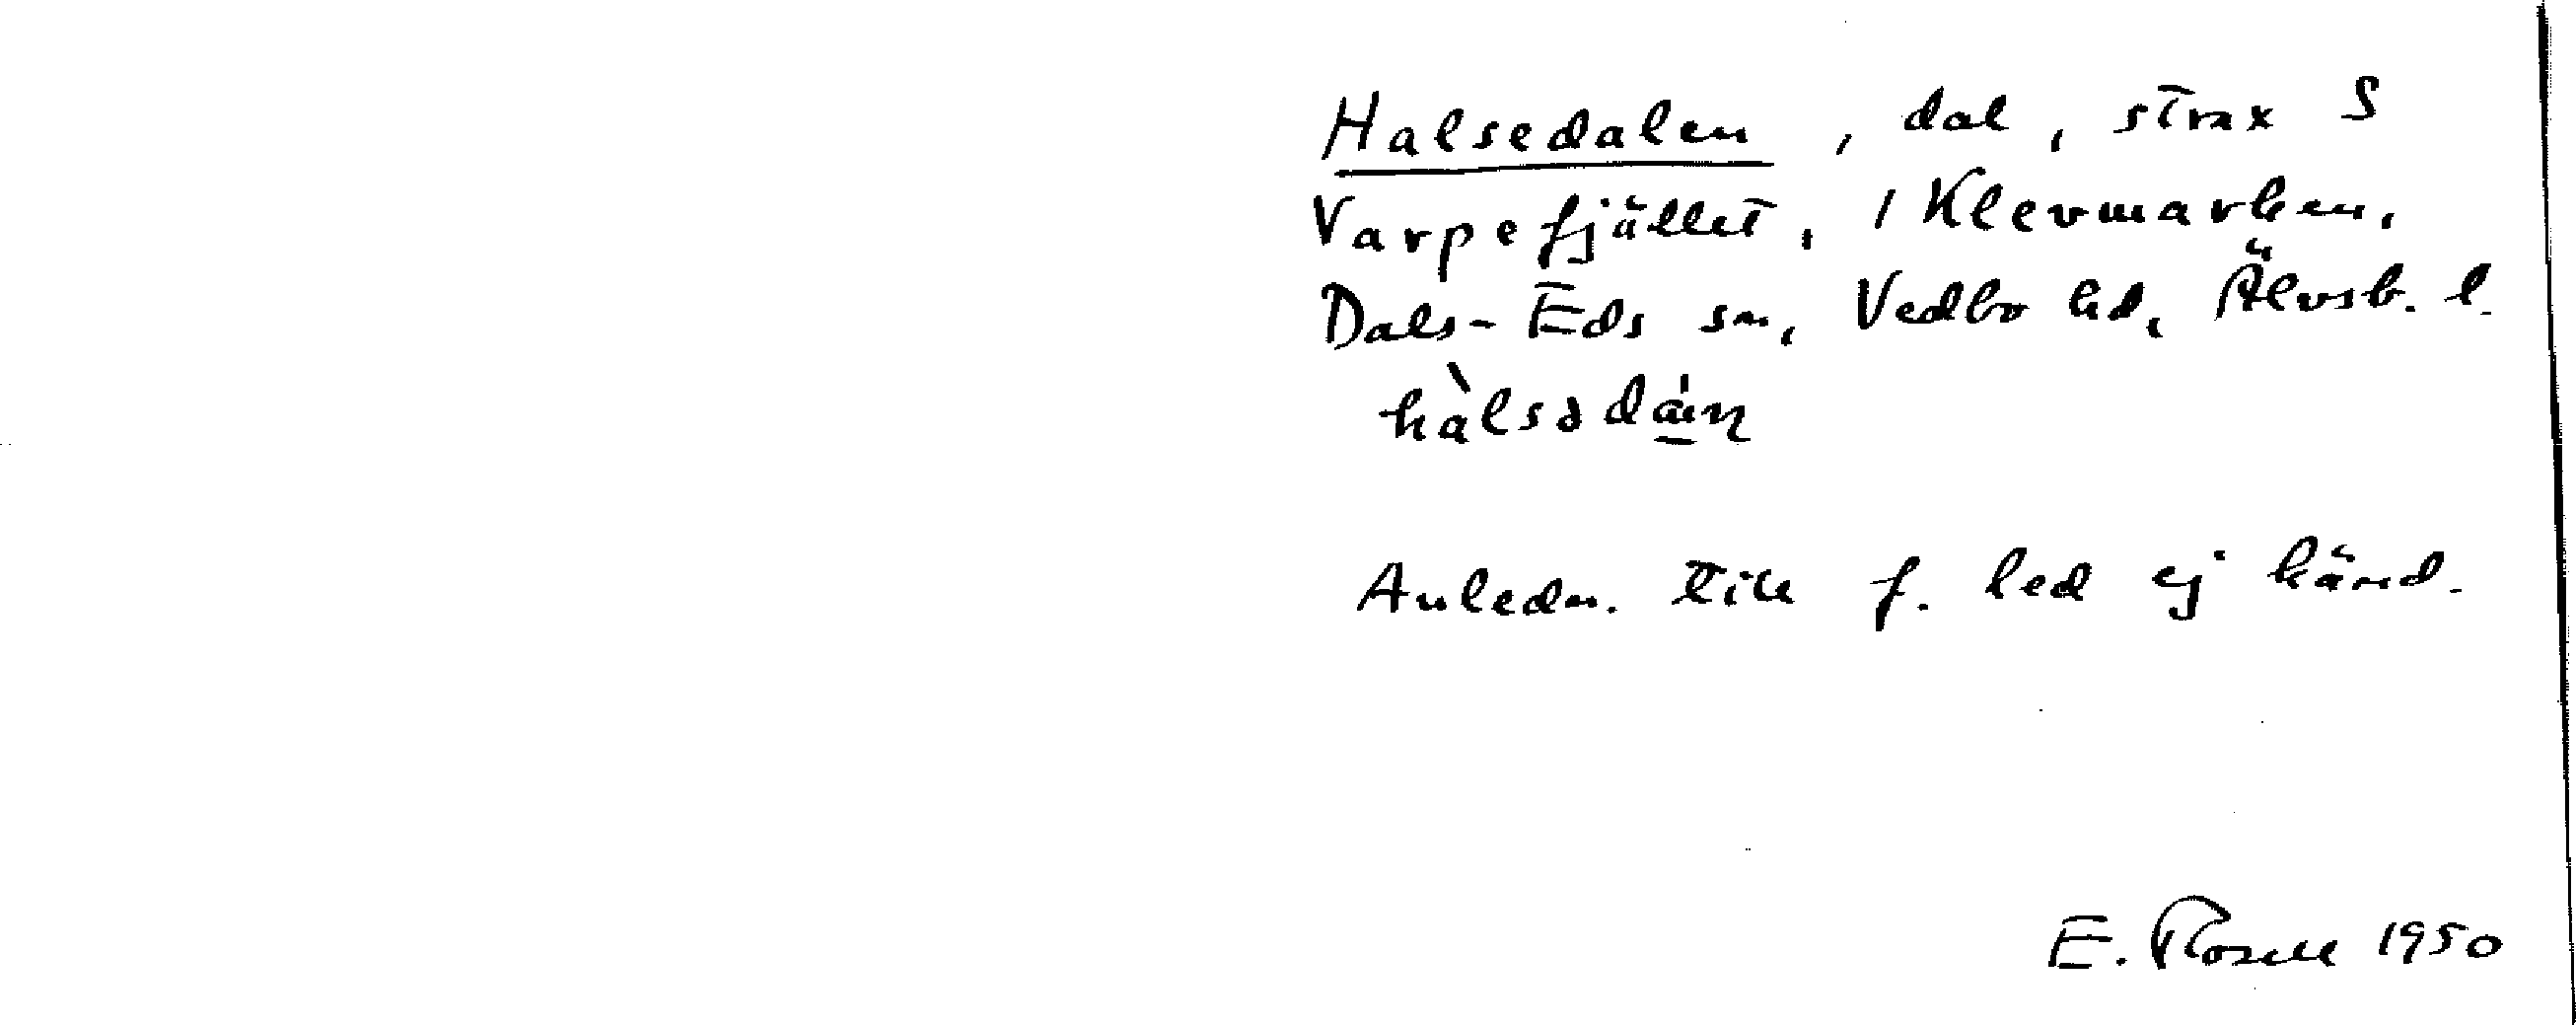 Halsedalen, dal, strax S
Varpefjället, i Klevmarken,
Dals-Eds sn, Vedbo hd, Älvsb. l.
hàlsə
Anledn. till f. led ej känd.
E. Rosell 1950